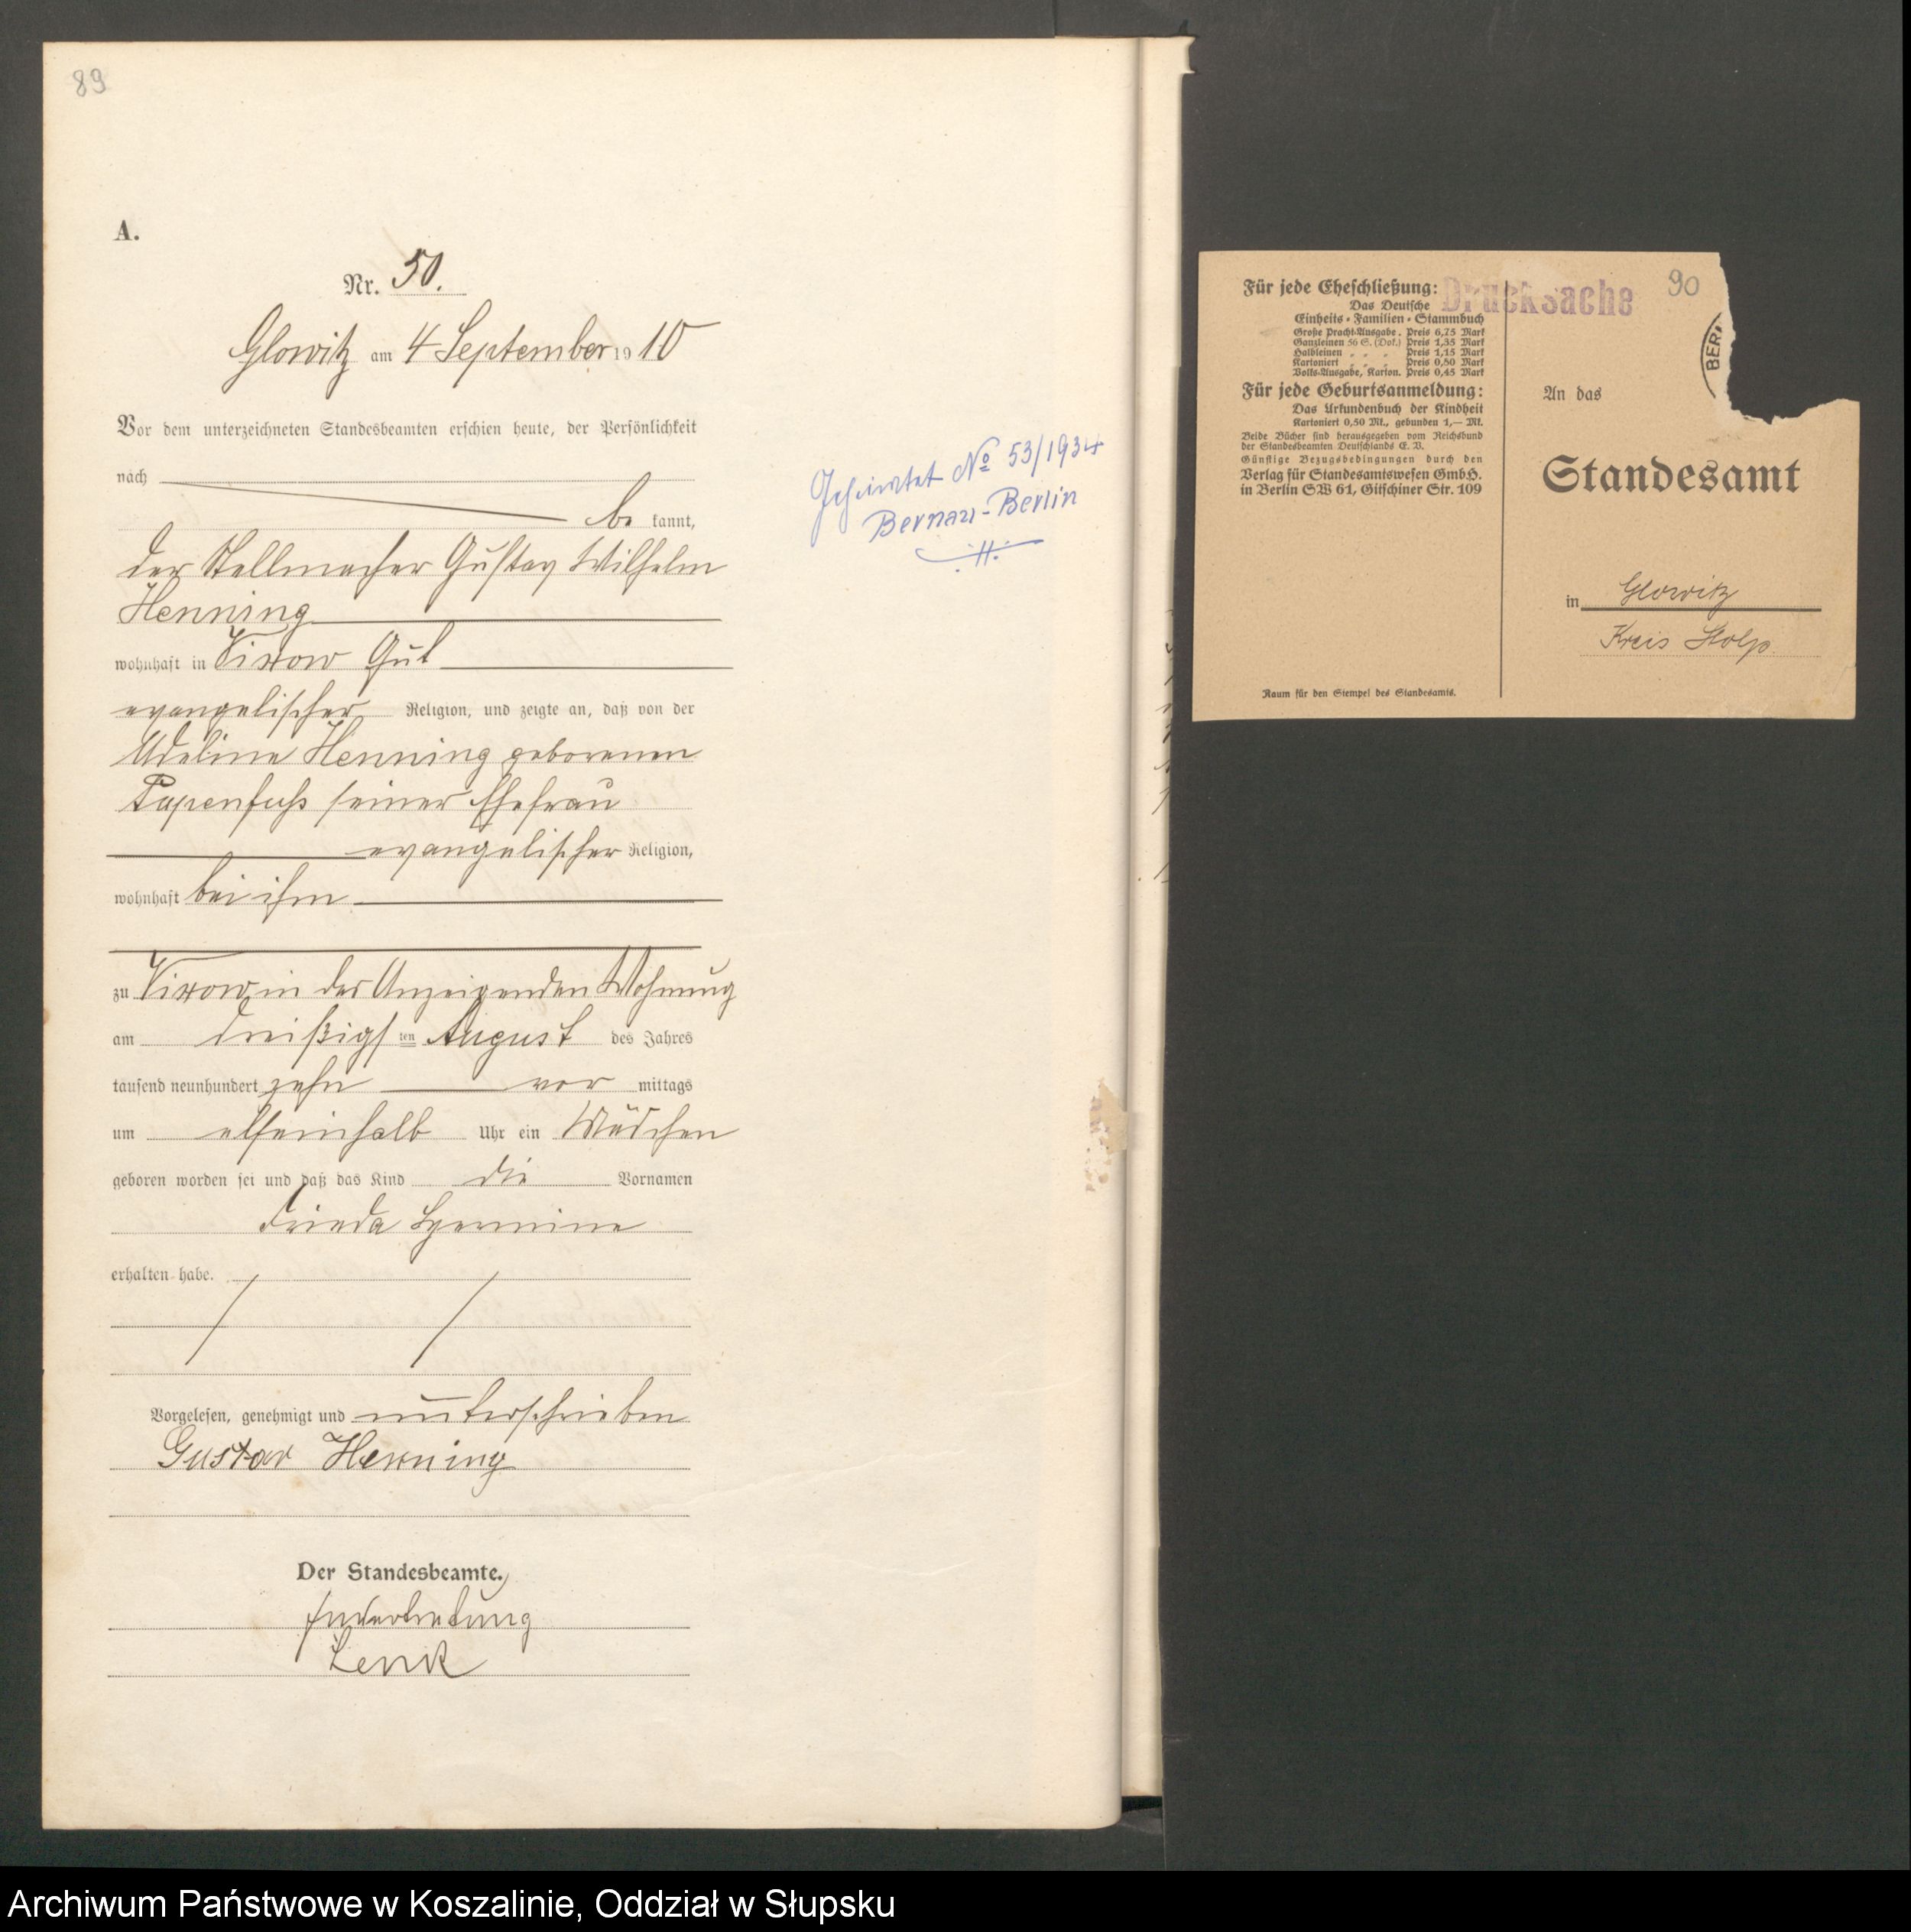 89
A.
Nr. 50.
Glowitz am 4 September 1910
Vor dem unterzeichneten Standesbeamten erschien heute, der Persönlichkeit
nach
be kannt,
der Stellmacher Gustav Wilhelm
Henning
wohnhaft in Vixow Gut
evangelischer Religion, und zeigte an, daß von der
Adeline Henning geborenen
Papenfuß seiner Ehefrau
evangelischer Religion,
wohnhaft bei ihm
zu Vixow in der Anzeigenden Wohnung
am dreißigsten August des Jahres
tausend neunhundert zehn vor mittags
um elfeinhalb Uhr ein Mädchen
geboren worden sei und daß das Kind die Vornamen
Frieda Hermine
erhalten habe.
Vorgelesen, genehmigt und unterschrieben
Gustav Henning
Der Standesbeamte.
In Vertretung
Lenk
Geheiratet No 53/1934
Bernau-Berlin
Für jede Eheschließung:
Das Deutsche
Einheits-Familien-Stammbuch
Große Pracht-Ausgabe. Preis 6,75 Mark
Ganzleinen 56 S. (Dok.) Preis 1,35 Mark
Halbleinen " " " Preis 1,15 Mark
Kartoniert " " " Preis 0,50 Mark
Volks-Ausgabe, Karton. Preis 0,45 Mark
Für jede Geburtsanmeldung:
Das Urkundenbuch der Kindheit
Kartoniert 0,50 Mk., gebunden 1,— Mk.
Beide Bücher sind herausgegeben vom Reichsbund
der Standesbeamten Deutschlands E. V.
Günstige Bezugsbedingungen durch den
Verlag für Standesamtswesen GmbH.
in Berlin SW 61, Gitschiner Str. 109
Raum für den Stempel des Standesamts.
Drucksache
90
BER
An das
Standesamt
in Glowitz
Kreis Stolp
Archiwum Państwowe w Koszalinie, Oddział w Słupsku